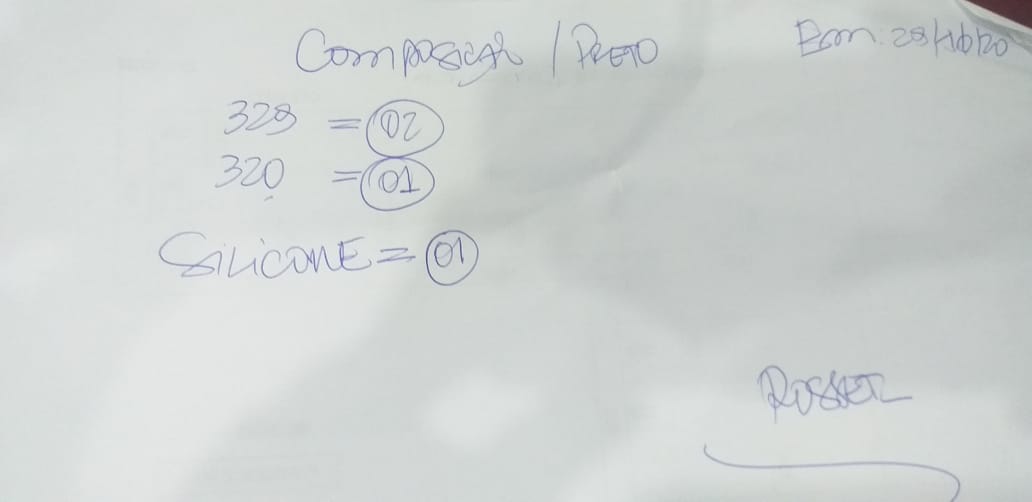 Composição / PRETO Em: 28/10/20
328 = 02
320 = 01
SILICONE = 01